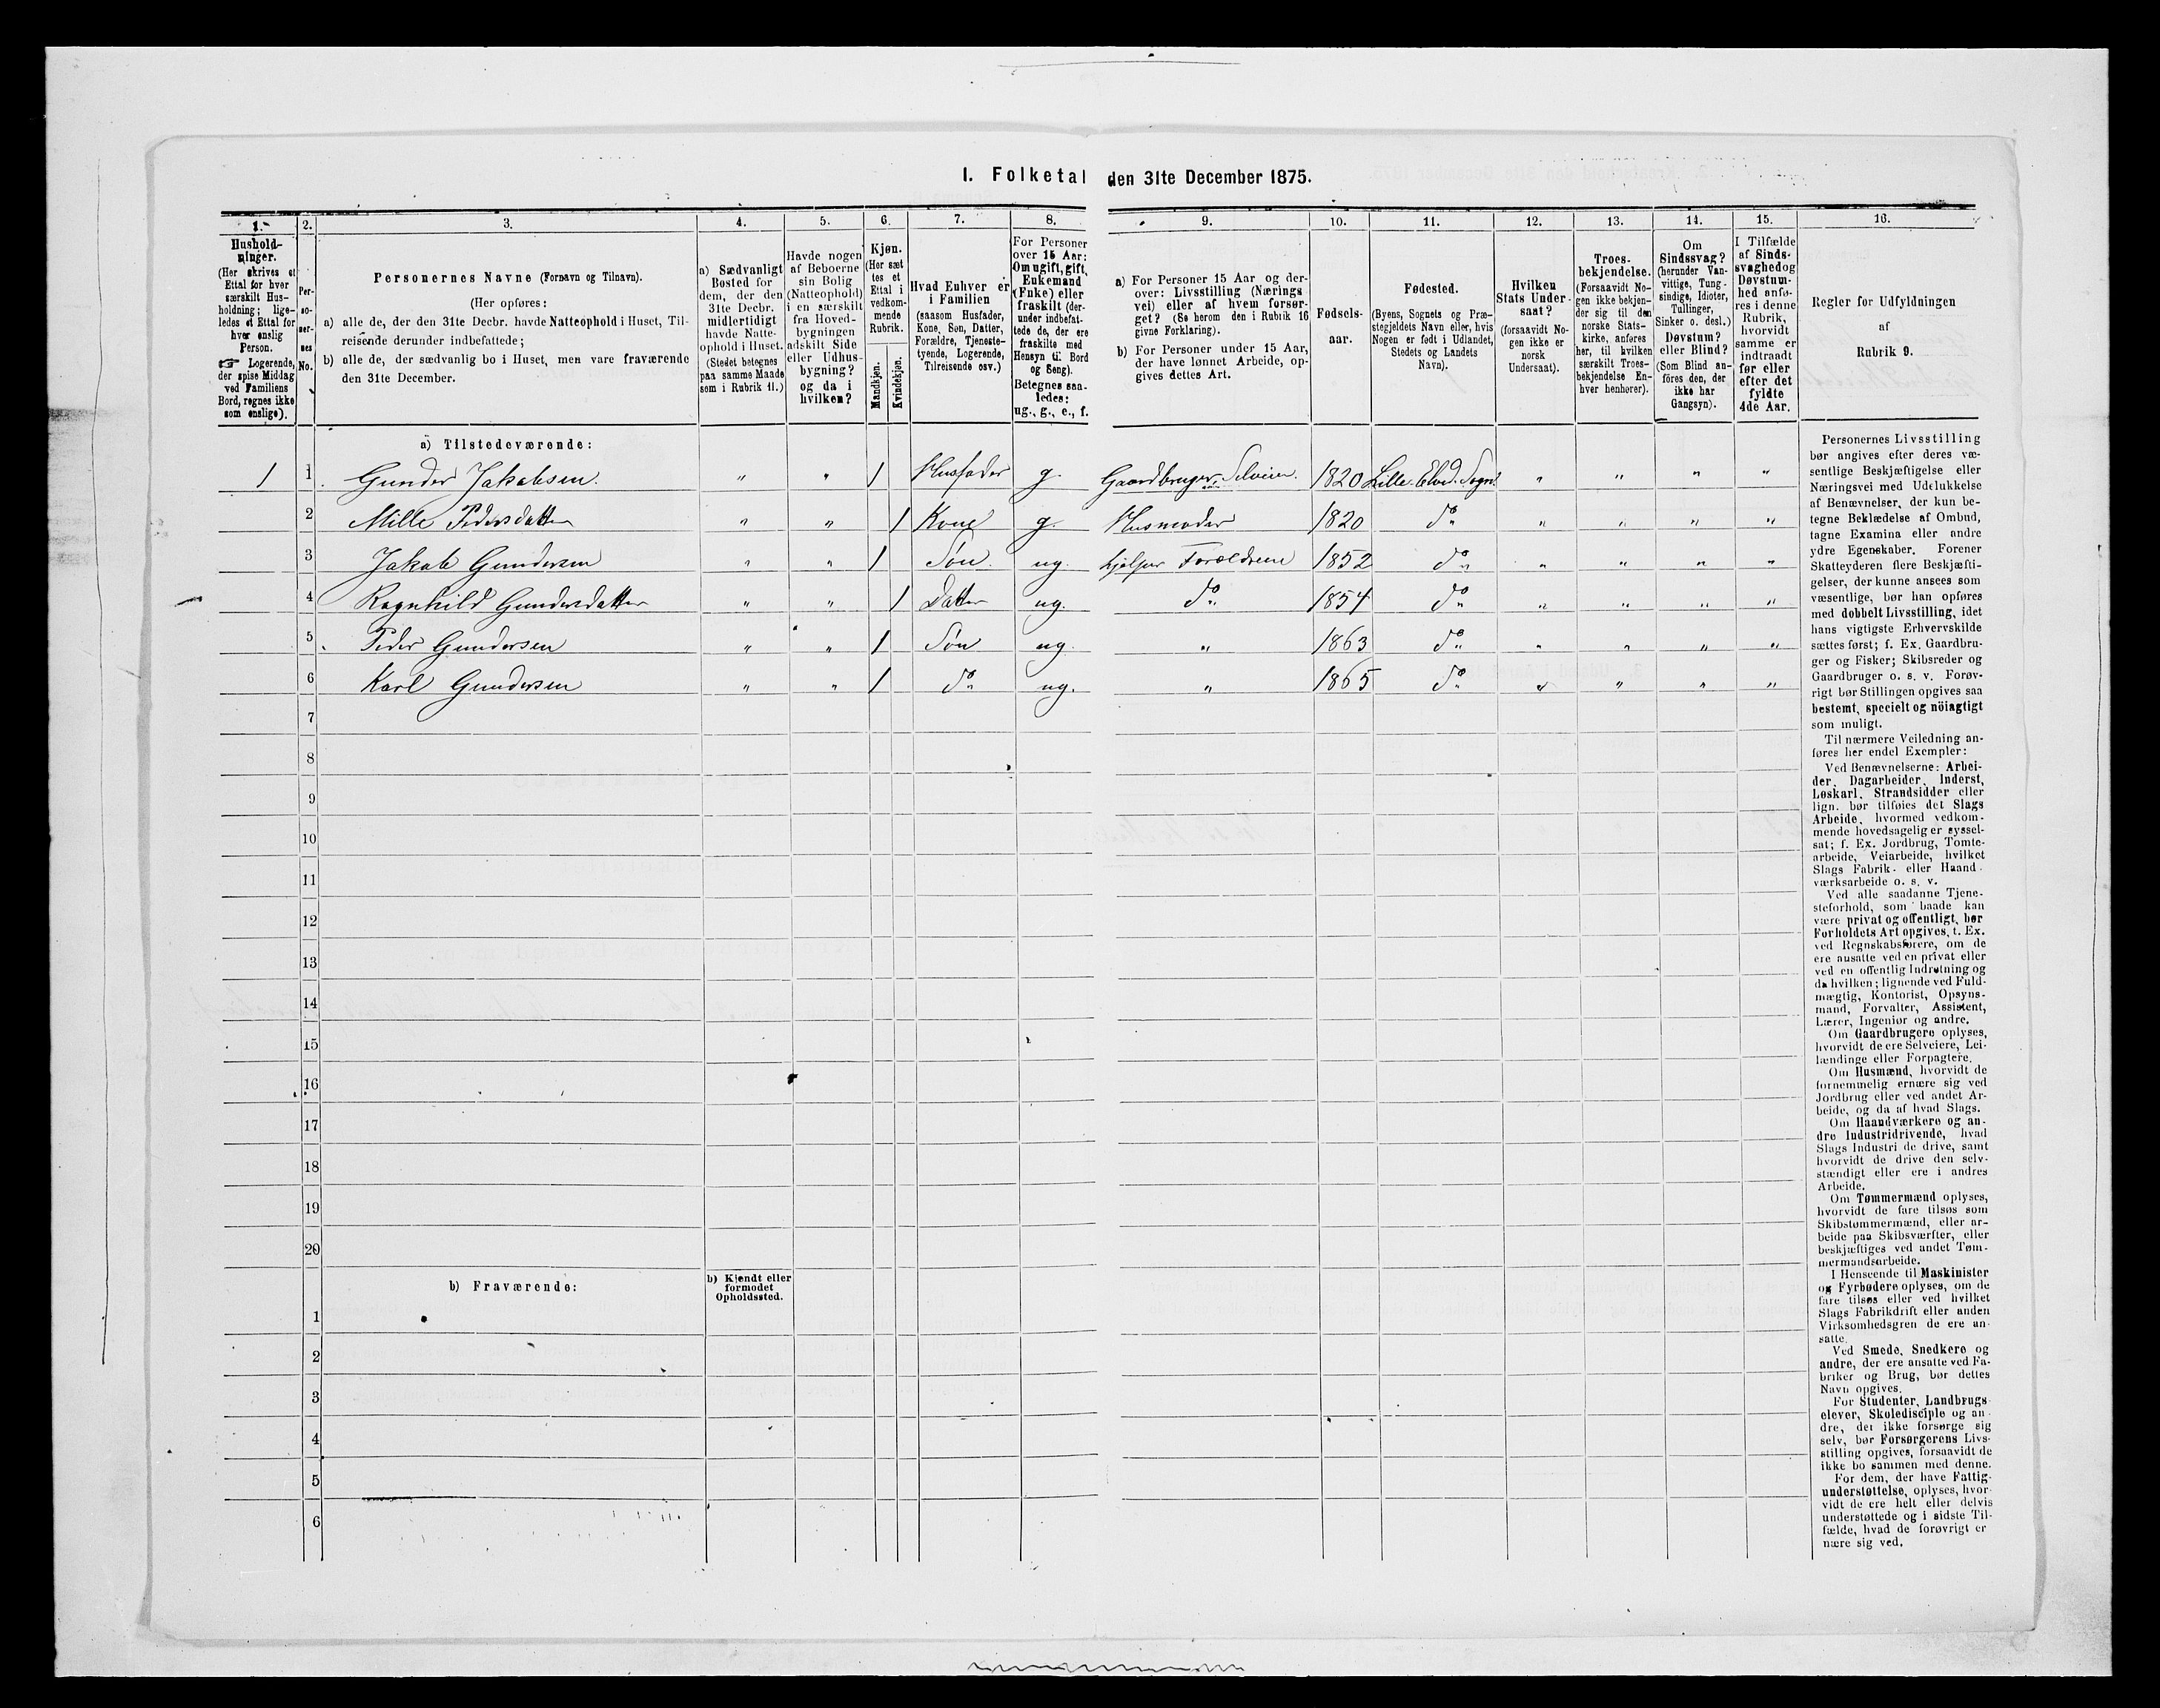 I. Folketal den 31te December 1875.
1. 2. 3. 4. 5. 6. 7. 8. 9. 10. 11. 12. 13. 14. 15. 16.
Hushold-
ninger.
(Her skrives et
Ettal for hver
særskilt Hus-
holdning; lige-
ledes et Ettal for
hver enslig
Person.
☞ Logerende,
der spise Middag
ved Familiens
Bord, regnes ikke
som enslige).
Per-
so-
ner-
nes
No.
Personernes Navne (Fornavn og Tilnavn).
(Her opføres:
a) alle de, der den 31te Decbr. havde Natteophold i Huset, Til-
reisende derunder indbefattede;
b) alle de, der sædvanlig bo i Huset, men vare fraværende
den 31te December.
a) Sædvanligt
Bosted for
dem, der den
31te Decbr.
midlertidigt
havde Natte-
ophold i Huset.
(Stedet betegnes
paa samme Maade
som i Rubrik 11.)
Havde nogen
af Beboerne
sin Bolig
(Natteophold)
i en særskilt
fra Hoved-
bygningen
adskilt Side
eller Udhus-
bygning?
og da i
hvilken?
Kjøn.
(Her sæt
tes et
Ettal i
vedkom-
mende
Rubrik.
Mandkjøn.
Kvindekjøn.
Hvad Enhver er
i Familien
(saasom Husfader,
Kone, Søn, Datter,
Forældre, Tjeneste-
tyende, Logerende,
Tilreisende osv.)
For Personer
over 15 Aar:
Om ugift, gift,
Enkemand
(Enke) eller
fraskilt (der-
under indbefat-
tede de, der ere
fraskilte med
Hensyn til Bord
og Seng).
Betegnes saa-
ledes:
ug., g., e., f.
a) For Personer 15 Aar og der-
over: Livsstilling (Nærings
vei) eller af hvem forsør-
get? (Se herom den i Rubrik 16
givne Forklaring).
b) For Personer under 15 Aar,
der have lønnet Arbeide, op-
gives dettes Art.
Fødsels-
aar.
Fødested.
(Byens, Sognets og Præ-
stegjeldets Navn eller, hvis
Nogen er født i Udlandet,
Stedets og Landets
Navn).
Hvilken
Stats Under-
saat?
(forsaavidt No-
gen ikke er
norsk
Undersaat).
Troes-
bekjendelse.
(Forsaavidt No-
gen ikke bekjen-
der sig til den
norske Stats-
kirke, anføres
her, til hvilken
særskilt Troes-
bekjendelse En-
hver henhører).
Om
Sindssvag?
(herunder Van-
vittige, Tung-
sindige, Idioter,
Tullinger,
Sinker o. desl.)
Døvstum?
eller Blind?
(Som Blind an-
føres den, der
ikke har
Gangsyn).
I Tilfælde
af Sinds-
svaghed og
Døvstum-
hed anfø-
res i denne
Rubrik,
hvorvidt
samme er
indtraadt
før eller
efter det
fyldte
4de Aar.
Regler for Udfyldningen
af
Rubrik 9.
a) Tilstedeværende:
1 1 Gunder Jakobsen. " " 1 Husfader g. Gaardbruger, Selveier. 1820 Lille Elvd. Sogn " " " "
2 Mille Pedersdatter " " 1 Kone g. Husmoder 1820 do " " " "
3 Jakob Gundersen " " 1 Søn ug. hjelper Forældrene 1852 do " " " "
4 Ragnhild Gundersdatter " " 1 Datter ug. do 1854 do " " " "
5 Peder Gundersen " " 1 Søn ug. " 1863 do " " " "
6 Karl Gundersen " " 1 do ug. " 1865 do " " " "
7
8
9
10
11
12
13
14
15
16
17
18
19
20
b) Fraværende:
b) Kjendt eller
formodet
Opholdssted.
1
2
3
4
5
6
Personernes Livsstilling
bør angives efter deres væ-
sentlige Beskjæftigelse eller
Næringsvei med Udelukkelse
af Benævnelser, der kun be-
tegne Beklædelse af Ombud,
tagne Examina eller andre
ydre Egenskaber. Forener
Skatteyderen flere Beskjæfti-
gelser, der kunne ansees som
væsentlige, bør han opføres
med dobbelt Livsstilling, idet
hans vigtigste Erhvervskilde
sættes først; f. Ex. Gaardbru-
ger og Fisker; Skibsreder og
Gaardbruger o. s. v. Forøv-
rigt bør Stillingen opgives saa
bestemt, specielt og nöiagtigt
som muligt.
Til nærmere Veiledning an-
føres her endel Exempler:
Ved Benævnelserne: Arbei-
der, Dagarbeider, Inderst,
Løskarl, Strandsidder eller
lign. bør tilføies det Slags
Arbeide, hvormed vedkom-
mende hovedsagelig er syssel-
sat; f. Ex. Jordbrug, Tomte-
arbeide, Veiarbeide, hvilket
Slags Fabrik- eller Haand-
værksarbeide o. s. v.
Ved alle saadanne Tjene-
steforhold, som baade kan
være privat og offentligt, bør
Forholdets Art opgives, t. Ex.
ved Regnskabsførere, om de
ere ansatte ved en privat eller
ved en offentlig Indretning og
da hvilken; lignende ved Fuld-
mægtig, Kontorist, Opsyns-
mand, Forvalter, Assistent,
Lærer, Ingeniør og andre.
Om Gaardbrugere oplyses,
hvorvidt de ere Selveiere, Lei-
lændinge eller Forpagtere.
Om Husmænd, hvorvidt de
fornemmelig ernære sig ved
Jordbrug eller ved andet Ar-
beide, og da af hvad Slags.
Om Haandværkere og an-
dre Industridrivende, hvad
Slags Industri de drive, samt
hvorvidt de drive den selv-
stændigt eller ere i andres
Arbeide.
Om Tømmermænd oplyses,
hvorvidt de fare tilsøs som
Skibstømmermænd, eller ar-
beide paa Skibsværfter, eller
beskjæftiges ved andet Tøm-
mermandsarbeide.
I Henseende til Maskinister
og Fyrbødere oplyses, om de
fare tilsøs eller ved hvilket
Slags Fabrikdrift eller anden
Virksomhedsgren de ere an-
satte.
Ved Smede, Snedkere og
andre, der ere ansatte ved Fa-
briker og Brug, bør dettes
Navn opgives.
For Studenter, Landbrugs-
elever, Skoledisciple og an-
dre, der ikke forsørge sig
selv, bør Forsørgerens Livs-
stilling opgives, forsaavidt de
ikke bo sammen med denne.
For dem, der have Fattig-
understøttelse, oplyses, hvor-
vidt de ere helt eller delvis
understøttede og i sidste Til-
fælde, hvad de forøvrigt er
nære sig ved.